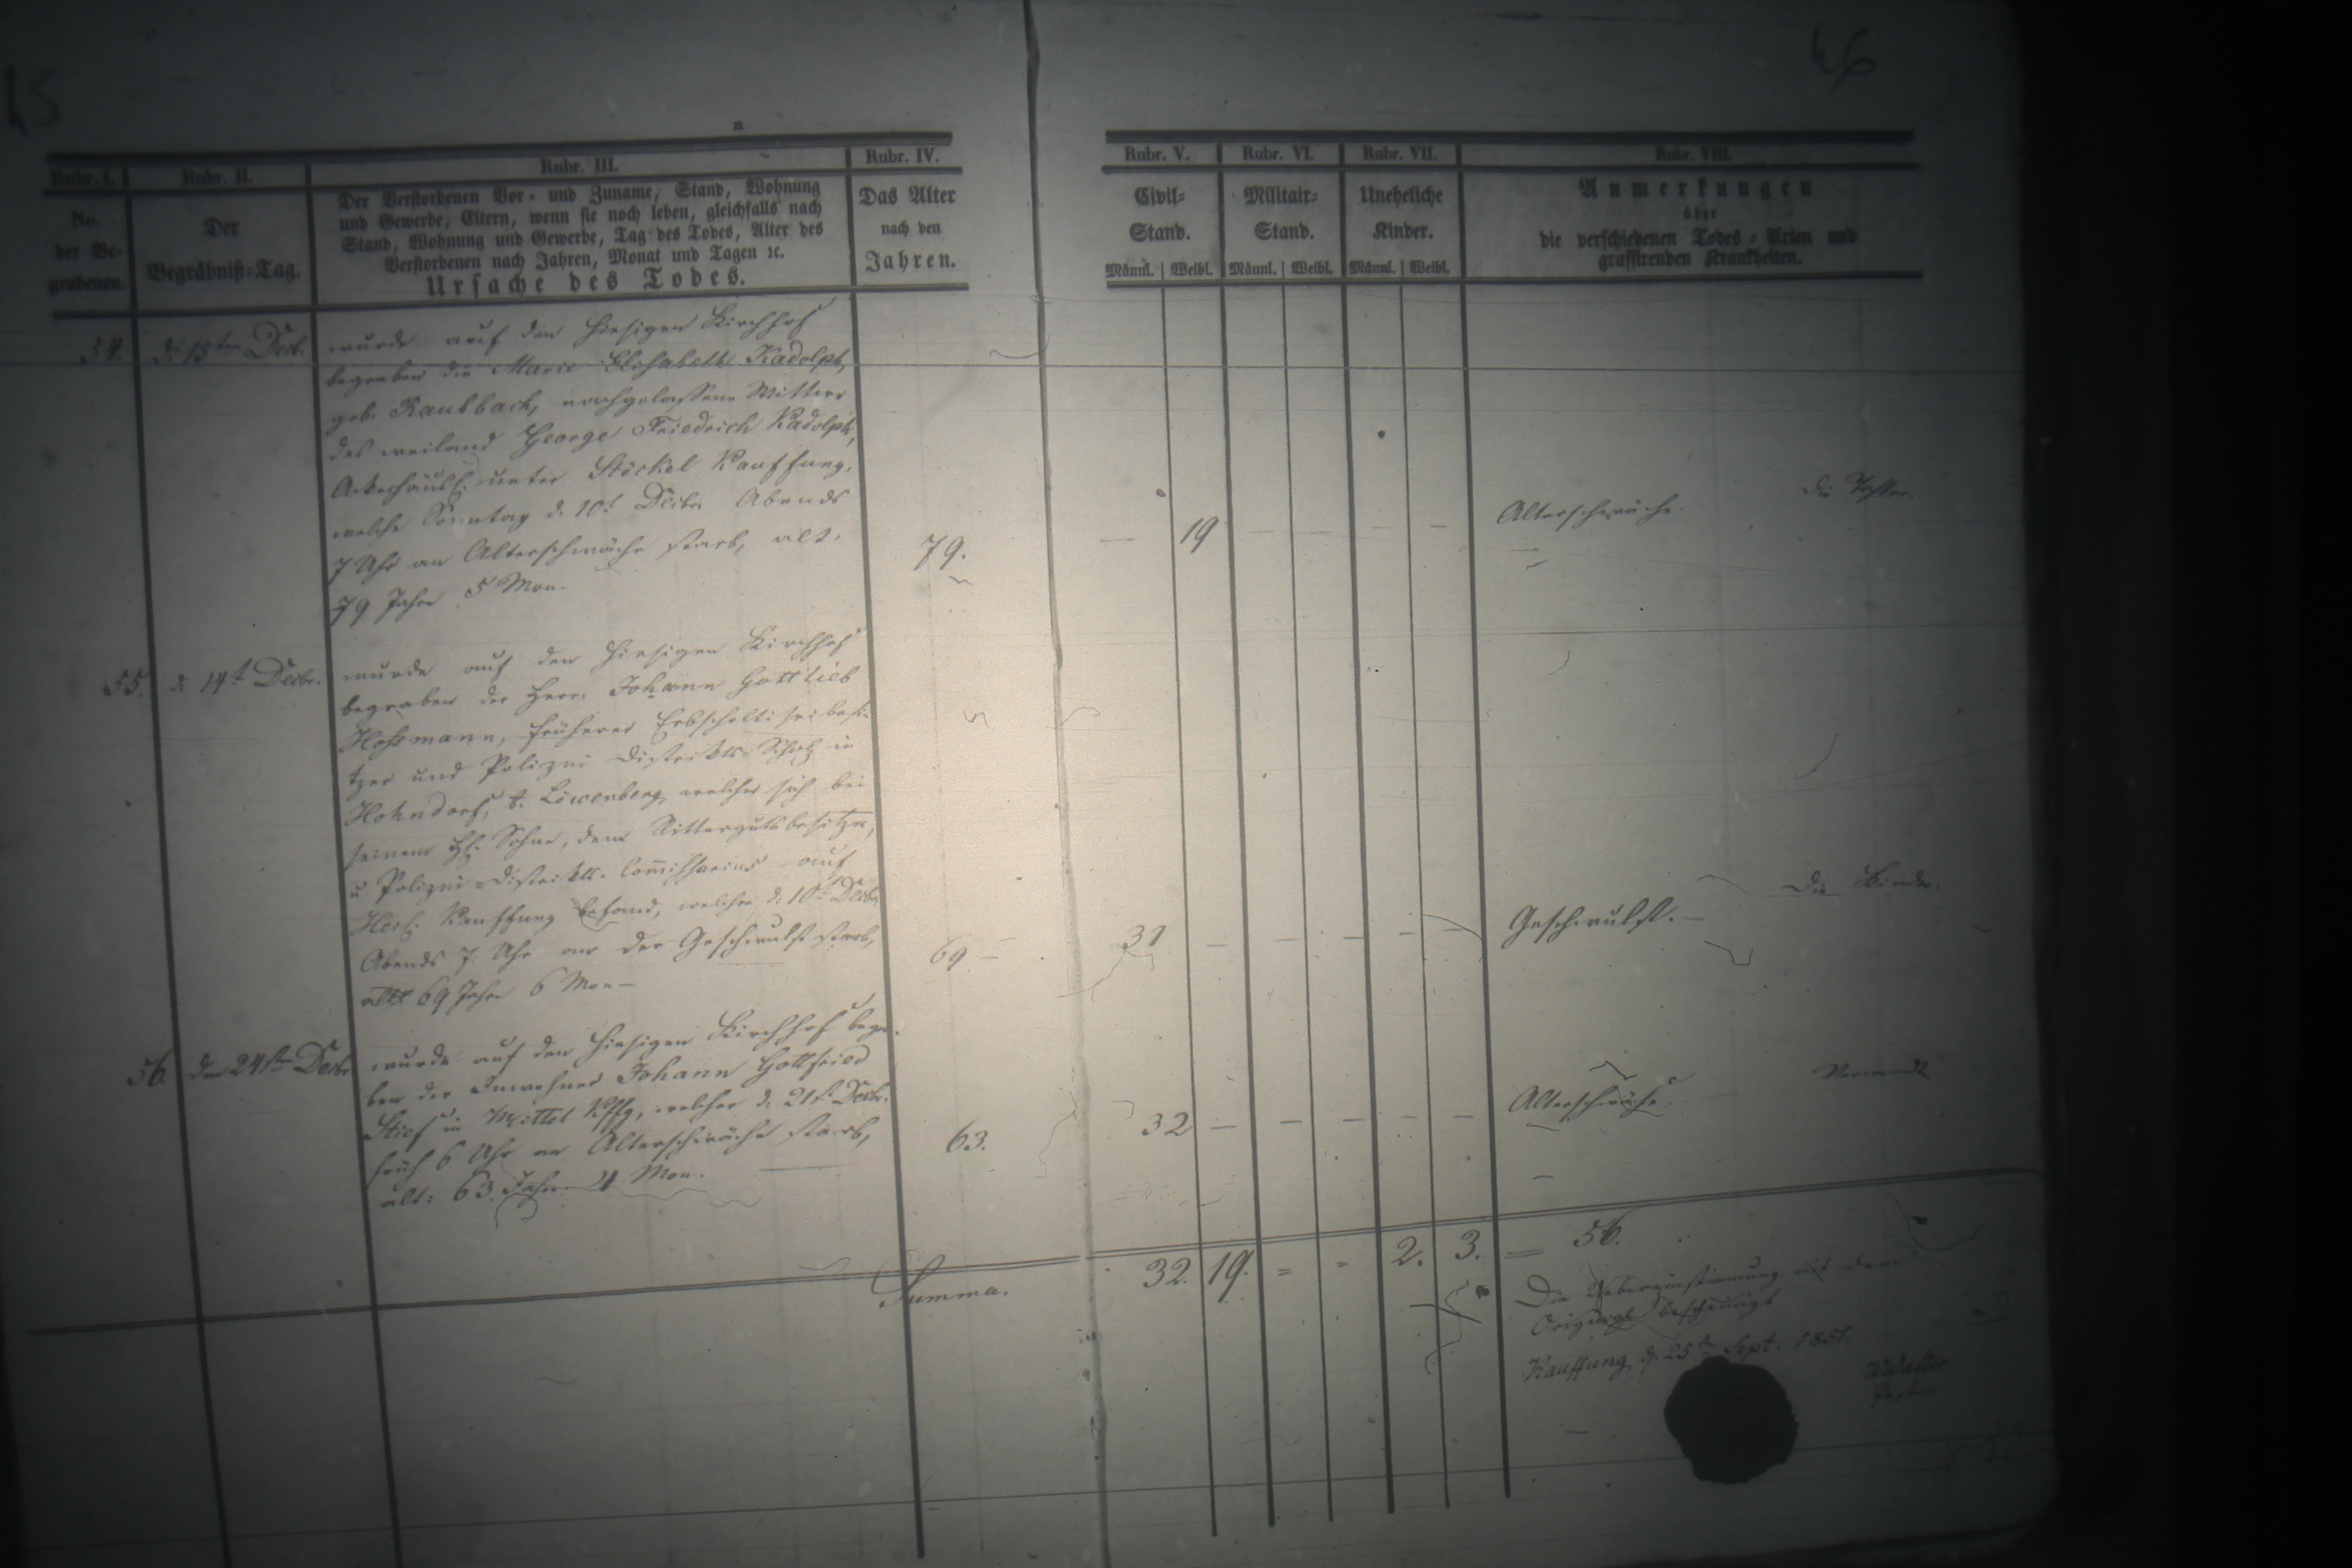 45
46
Rubr. I.
Rubr. II.
Rubr. III.
Rubr. IV.
Rubr. V.
Rubr. VI.
Rubr. VII.
Rubr. VIII.
No.
der Be-
grabenen.
Der
Begräbniß-Tag.
Der Verstorbenen Vor- und Zuname, Stand, Wohnung
und Gewerbe, Eltern, wenn sie noch leben, gleichfalls nach
Stand, Wohnung und Gewerbe, Tag des Todes, Alter des
Verstorbenen nach Jahren, Monat und Tagen ꝛc.
Ursache des Todes.
Das Alter
nach den
Jahren.
Civil-
Stand.
Männl. Weibl.
Militair-
Stand.
Männl. Weibl.
Uneheliche
Kinder.
Männl. Weibl.
Anmerkungen
über
die verschiedenen Todes-Arten und
grassirenden Krankheiten.
54. d. 13ten Decb.
wurde auf den hiesigen Kirchhof
begraben die Marie Elisabeth Kadolph,
geb. Raubbach, nachgelassene Wittwe
des weiland George Friedrich Kadolph,
Ackerhäusl. unter Stöckel Kauffung,
welche Sonntag d. 10t Decbr. Abends
7 Uhr an Alterschwäche starb, alt:
79 Jahre 5 Mon.
79.
— 19 — — — —
Alterschwäche.
55. d 14t Decbr.
wurde auf den hiesigen Kirchhof
begraben der Herr Johann Gottlieb
Hoffmann, früherer Erbscholtiseibesi-
tzer und Polizei Distrikts-Scholz in
Hohndorf, b. Löwenberg, welcher sich bei
seinem H. Sohne, dem Rittergutsbesitzer,
u Polizei-Distrikts-Commissarius auf
Kauffung befand, welcher d. 10t Decbr.
Abends 7 Uhr an der Geschwulst starb,
alt 69 Jahre 6 Mon —
69 —
31 — — — — —
Geschwulst. —
Die Kinder.
56. den 24sten Decbr.
wurde auf den hiesigen Kirchhof begra-
ben der Inwohner Johann Gottfried
Stief in Mittel Kffg, welcher d. 21st Decbr.
früh 6 Uhr an Alterschwäche starb,
alt: 63. Jahr 4 Mon.
63.
32 — — — — —
Alterschwäche.
Summa.
32. 19. = = 2. 3. = 56.
Die Uebereinstimmung mit dem
Original bescheinigt
Kauffung, d. 25ten Sept. 1851.
Walter
Pastor